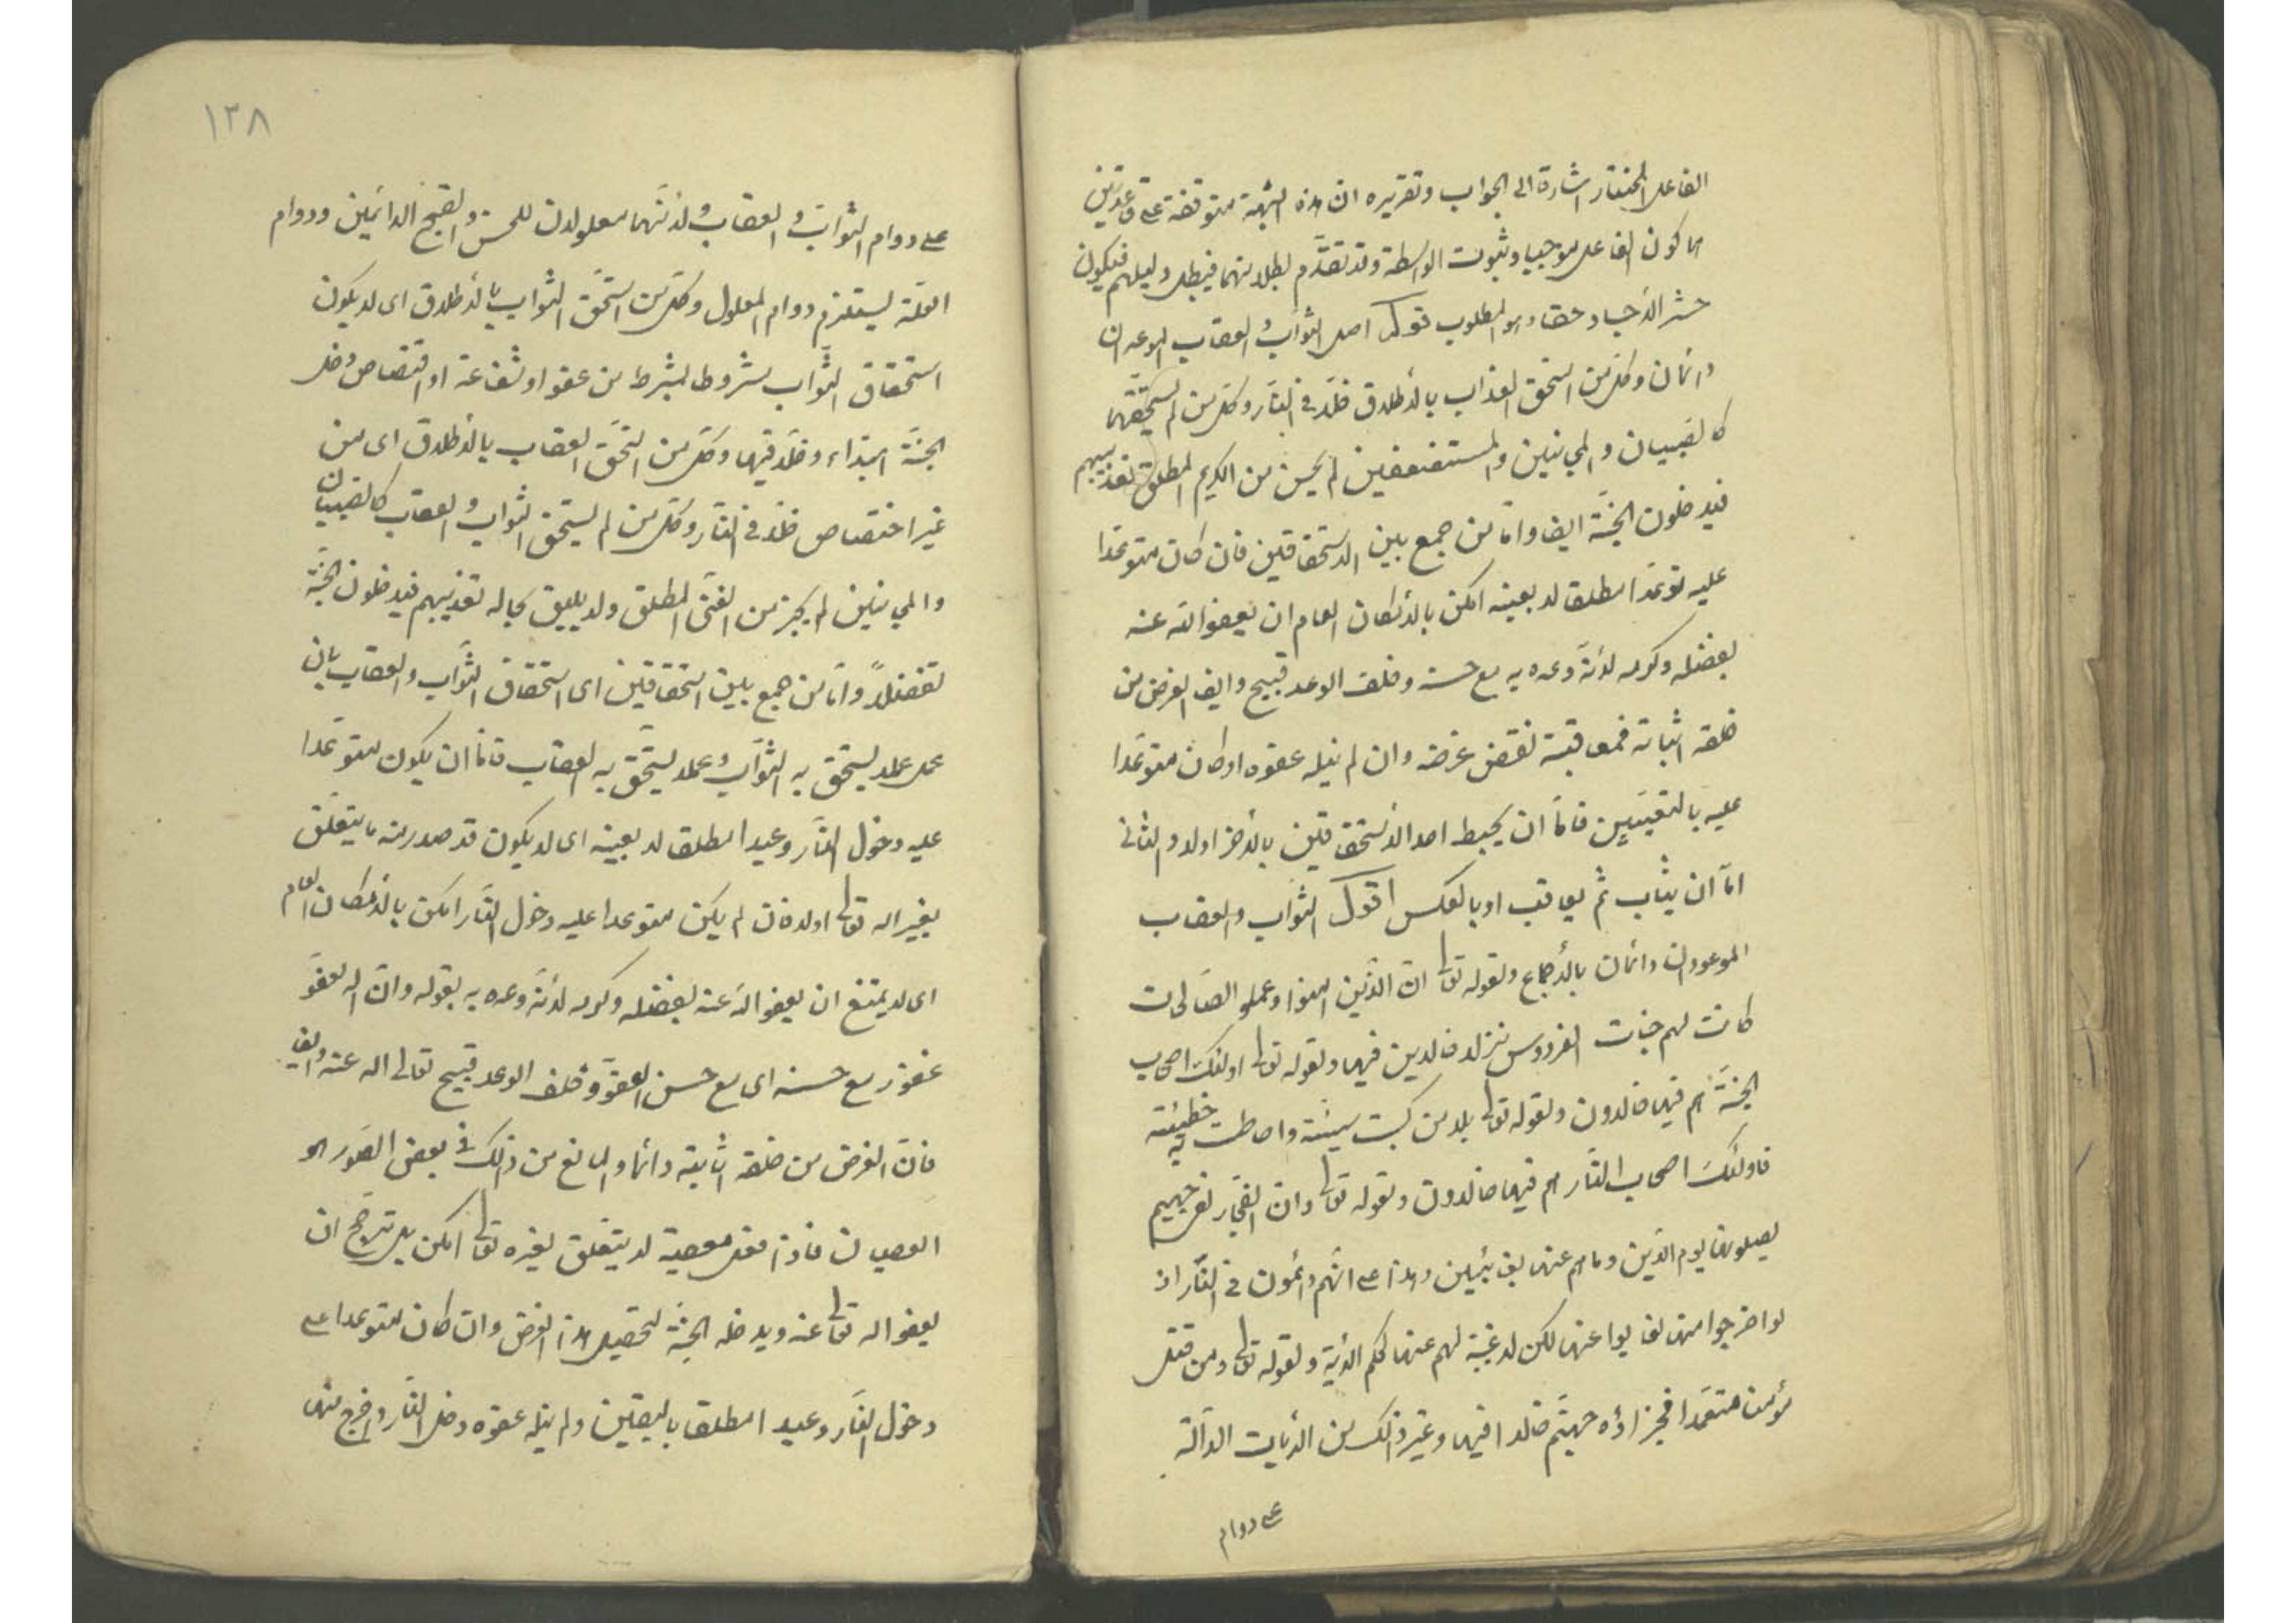 الفاعل المختار اشارة الى الجواب وتقريره ان هذه الشبهة متوقفة على قاعدتين
هما كون الفاعل موجبا وثبوت الواسطة وقد تقدّم بطلانهما فيبطل دليلهم فيكون
حشر الأجساد حقا وهو المطلوب قوله اصل الثواب والعقاب الموعدان
دائمان وكل من استحق العذاب بالأطلاق خلّد في النّار وكل من لم يستحقّهما
كالصّبيان والمجانين والمستضعفين لم يحسن من الكريم المطلق تعذيبهم
فيدخلون الجنّة ايضا وامّا من جمع بين الاستحقاقين فان كان متوعّدا
عليه توعّدا مطلقا لا بعينه امكن بالأمكان العام ان يعفوا الله عنه
بفضله وكرمه لأنّه وعده به مع حسنه وخلف الوعد قبيح وايضا الغرض من
خلقه اثباته فمعاقبته نقض غرضه وان لم ينله عفوه او كان متوعّدا
عليه بالتعيين فامّا ان يحبط احد الأستحقاقين بالأخر اولا والثانى
امّا ان يثاب ثم يعاقب او بالعكس اقول الثواب والعقاب
الموعودان دائمان بالأجماع ولقوله تعالى انّ الّذين امنوا وعملو الصّالحات
كانت لهم جنات الفردوس نزلا خالدين فيها ولقوله تعالى اولئك اصحاب
الجنّة هم فيها خالدون ولقوله تعالى بلى من كسب سيئة واحاطت به خطيئته
فاولئك اصحاب النّار هم فيها خالدون ولقوله تعالى وان الفجّار لفى جحيم
يصلونها يوم الدّين وما هم عنها بغائبين وهذا على انّهم دائمون في النّار اذ
لو اخرجوا منها لغابوا عنها لكن لا غيبة لهم عنها بحكم الأية ولقوله تعالى ومن قتل
مؤمنا متعمّدا فجزاؤه جهنّم خالدا فيها وغير ذلك من الأيات الدّالّة
على دوام
١٣٨
على دوام الثواب والعقاب ولأنّهما معلولان للحسن والقبح الدائمين ودوام
العلّة يستلزم دوام المعلول وكل من استحق الثواب بالأطلاق اى لا يكون
استحقاق الثّواب مشروطا بشرط من عفو او شفاعة او اقتصاص دخل
الجنّة ابتداء وخلّد فيها وكل من استحّق العقاب بالأطلاق اى من
غير اختصاص خلّد في النّار وكل من لم يستحق الثواب والعقاب كالصّبيان
والمجانين لم يجز من الغنىّ المطلق ولا يليق بحاله تعذيبهم فيدخلون الجنّة
تفضّلاً وامّا من جمع بين استحقاقين اى استحقاق الثّواب والعقاب بان
عمل عملا يستحق به الثّواب وعملا يستحّق به العقاب فامّا ان يكون متوعّدا
عليه دخول النّار وعيدا مطلقا لا بعينه اى لا يكون قد صدر منه ما يتعلّق
بغير اله تعالى اولا فان لم يكن متوعدا عليه دخول النّار امكن بالأمكان العام
اى لا يمتنع ان يعفو الله عنه بفضله وكرمه لأنّه وعده به بقوله وانّ اله لعفوّ
غفور مع حسنه اى مع حسن العفوّ وخلف الوعد قبيح تعالى اله عنه وايضا
فانّ الغرض من خلقه اثابته دائما والمانع من ذلك في بعض الصّور هو
العصيان فاذا فعل معصية لا يتعلّق بغيره تعالى امكن بل ترجّح ان
يعفو اله تعالى عنه ويدخله الجنّة لتحصيل هذا الغرض وان كان متوعدا على
دخول النّار وعيدا مطلقا باليقين ولم ينله عفوه دخل النّار واخرج منها